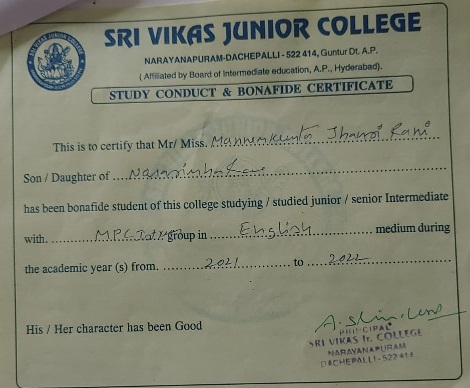 SRI VIKAS JUNIOR COLLEGE
NARAYANAPURAM-DACHEPALLI - 522 414, Guntur Dt. A.P.
( Affiliated by Board of Intermediate education, A.P., Hyderabad).
STUDY CONDUCT & BONAFIDE CERTIFICATE
This is to certify that Mr/ Miss. Jhansi Rani
Son / Daughter of
has been bonafide student of this college studying / studied junior / senior Intermediate
with. MPC group in English medium during
the academic year (s) from. 2021 to 2022
His / Her character has been Good
PRINCIPAL
SRI VIKAS Jr. COLLEGE
NARAYANAPURAM
DACHEPALLI - 522 414